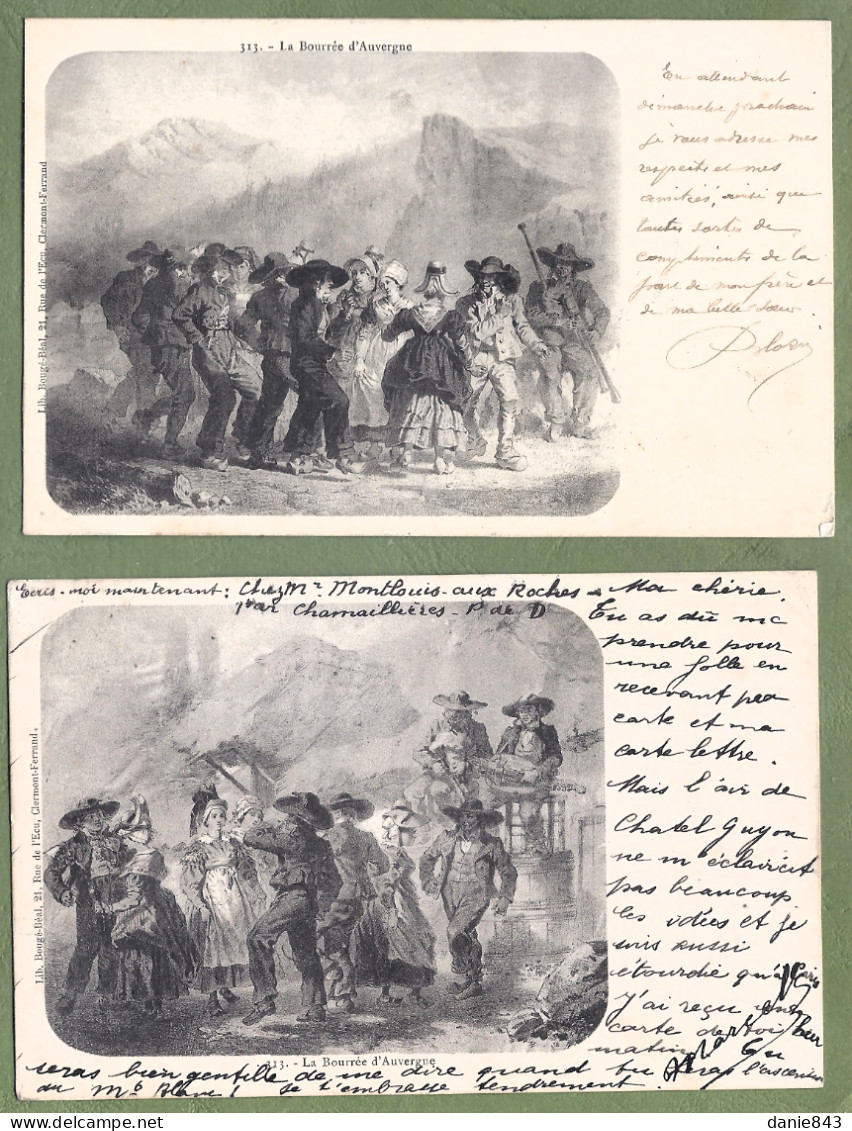 313. - La Bourrée d'Auvergne
Lib. Bougé-Béal, 21, Rue de l'Ecu, Clermont-Ferrand
En attendant
dimanche prochain
je vous adresse mes
respects et mes
amitiés, ainsi que
toutes sortes de
compliments de la
part de mon frère et
de ma belle sœur.
Ecris-moi maintenant : Chez Mr Montlouis-aux Roches
par Chamaillières - P. de D
Ma chérie.
Tu as dû me
prendre pour
une folle en
recevant pea
carte et ma
carte lettre.
Mais l'air de
Chatel Guyon
ne m'éclaircit
pas beaucoup
les idées et je
suis aussi
étourdie qu'à Paris
J'ai reçu une
carte de toi
matin. Tu
seras bien gentille de me dire quand tu
au Mt Blanc ! Je t'embrasse tendrement.
Lib. Bougé-Béal, 21, Rue de l'Ecu, Clermont-Ferrand.
313. - La Bourrée d'Auvergne
danie843